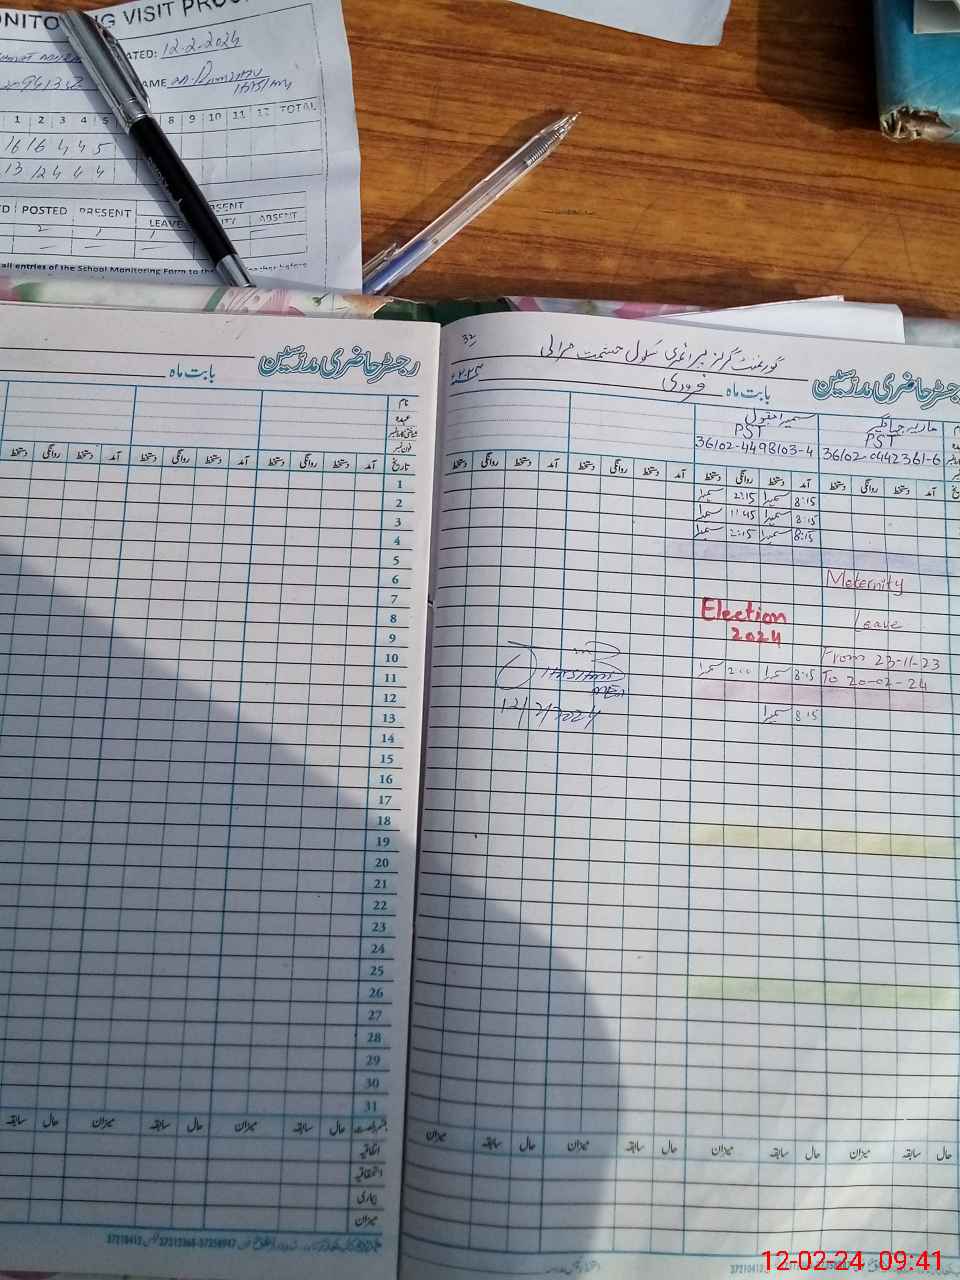 DATED: 12-2-2024
NAME
1 2 3 4 5 8 9 10 11 12 TOTAL
16 16 4 4 5
13 12 4 4 4
POSTED PRESENT LEAVE ABSENT
all entries of the School Monitoring Form to the
رجسٹر حاضری مدرسین
بابت ماہ
نام
عہدہ
شناختی کارڈ نمبر
فون نمبر
تاریخ آمد دستخط روانگی دستخط آمد دستخط روانگی دستخط آمد دستخط روانگی دستخط
1
2
3
4
5
6
7
8
9
10
11
12
13
14
15
16
17
18
19
20
21
22
23
24
25
26
27
28
29
30
31
حال سابقہ میزان حال سابقہ میزان حال سابقہ
اتفاقیہ
استحقاقیہ
بیماری
میزان
32
گورنمنٹ گرلز پرائمری سکول حشمت مرالی
رجسٹر حاضری مدرسین
بابت ماہ فروری
ماریہ جہانگیر سمیرا مقبول
PST PST
36102-0442361-6 36102-4498103-4
آمد دستخط روانگی دستخط آمد دستخط روانگی دستخط آمد دستخط روانگی دستخط آمد دستخط روانگی دستخط
8:15 سمیرا 2:15 سمیرا
8:15 سمیرا 11:45 سمیرا
8:15 سمیرا 2:15 سمیرا
Meternity
Leave
From 23-11-23
To 20-02-24
Election
2024
8:15 سمیرا 2:00 سمیرا
8:15 سمیرا
MEA
12/2/2024
حال سابقہ میزان حال سابقہ میزان حال سابقہ میزان حال سابقہ میزان
12-02-24 09:41